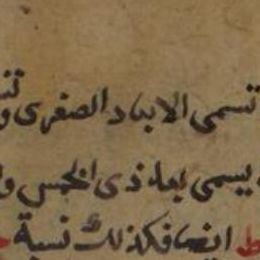 تسمى الابعاد الصغرى و
يسمى بعد ذى الخمس و
ط ايضا فكذلك نسبة